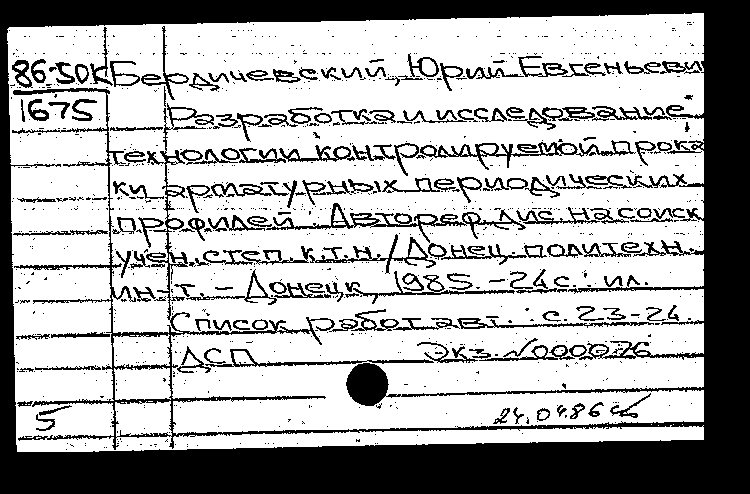 86-5ОК Бердичевский, Юрий Евгеньеви
1675 Разработка и исследование
технологии контролируемой прока
ки арматурных периодических
профилей : Автореф. дис. на соиск
учен. степ. к.т.н. / Донец. политехн.
ин-т. - Донецк, 1985. - 24 с. : ил.
Список работ авт. : с. 23-24.
ДСП Экз. №000076
5 24.04.86